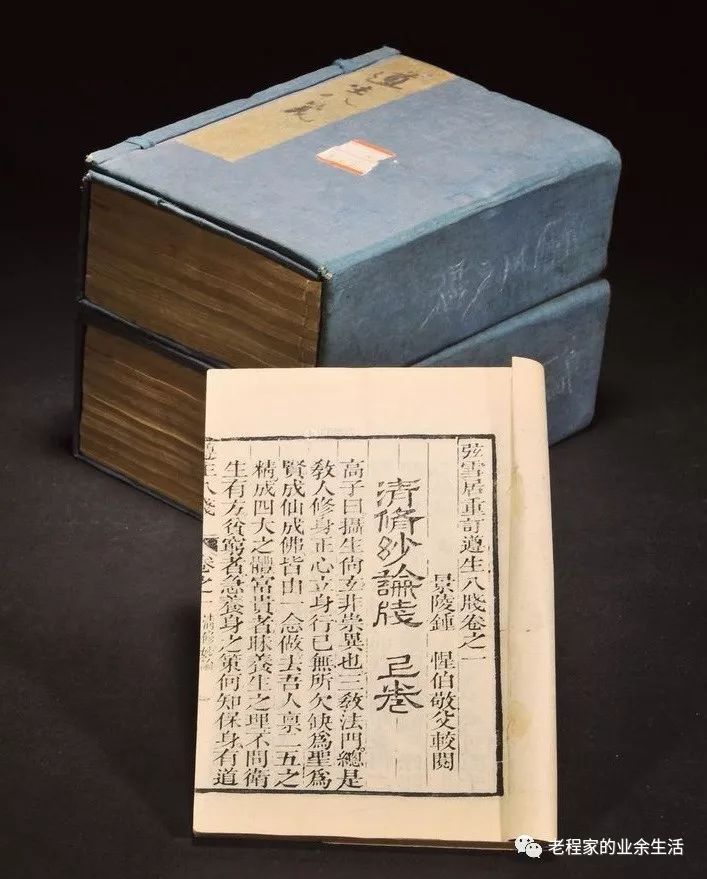 遵生八
弦雪居重訂遵生八牋卷之一
景陵鍾 惺伯敬父較閱
清脩玅論牋 上卷
高子曰攝生尚玄非崇異也三敎法門總是
敎人修身正心立身行己無所欠缺爲聖爲
賢成仙成佛皆由一念做去吾人禀二五之
精成四大之體富貴者昧養生之理不問衛
生有方貧窮者急養身之策何知保身有道
遵生八牋 卷之一
老程家的业余生活